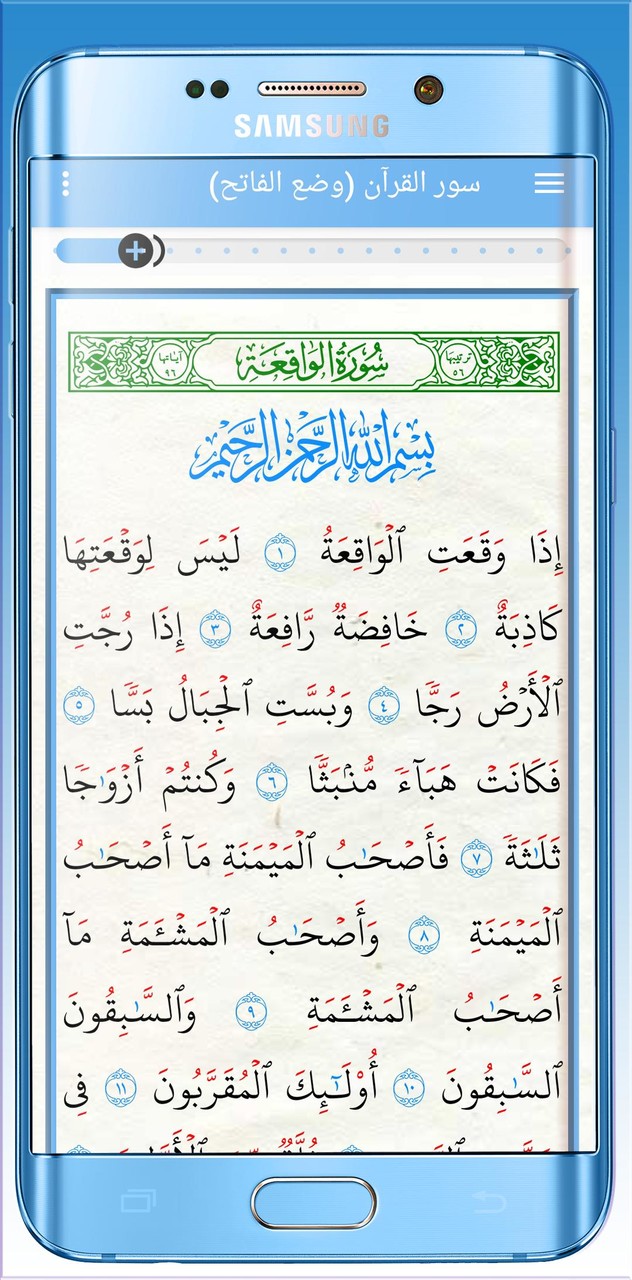 SAMSUNG
سور القرآن (وضع الفاتح)
ترتيبها ٥٦ سُورَةُ الوَاقِعَة آياتها ٩٦
بِسْمِ اللَّهِ الرَّحْمَٰنِ الرَّحِيمِ
إِذَا وَقَعَتِ ٱلْوَاقِعَةُ ١ لَيْسَ لِوَقْعَتِهَا
كَاذِبَةٌ ٢ خَافِضَةٌ رَّافِعَةٌ ٣ إِذَا رُجَّتِ
ٱلْأَرْضُ رَجًّا ٤ وَبُسَّتِ ٱلْجِبَالُ بَسًّا ٥
فَكَانَتْ هَبَآءً مُّنۢبَثًّا ٦ وَكُنتُمْ أَزْوَٰجًا
ثَلَٰثَةً ٧ فَأَصْحَٰبُ ٱلْمَيْمَنَةِ مَآ أَصْحَٰبُ
ٱلْمَيْمَنَةِ ٨ وَأَصْحَٰبُ ٱلْمَشْـَٔمَةِ مَآ
أَصْحَٰبُ ٱلْمَشْـَٔمَةِ ٩ وَٱلسَّٰبِقُونَ
ٱلسَّٰبِقُونَ ١٠ أُو۟لَٰٓئِكَ ٱلْمُقَرَّبُونَ ١١ فِى